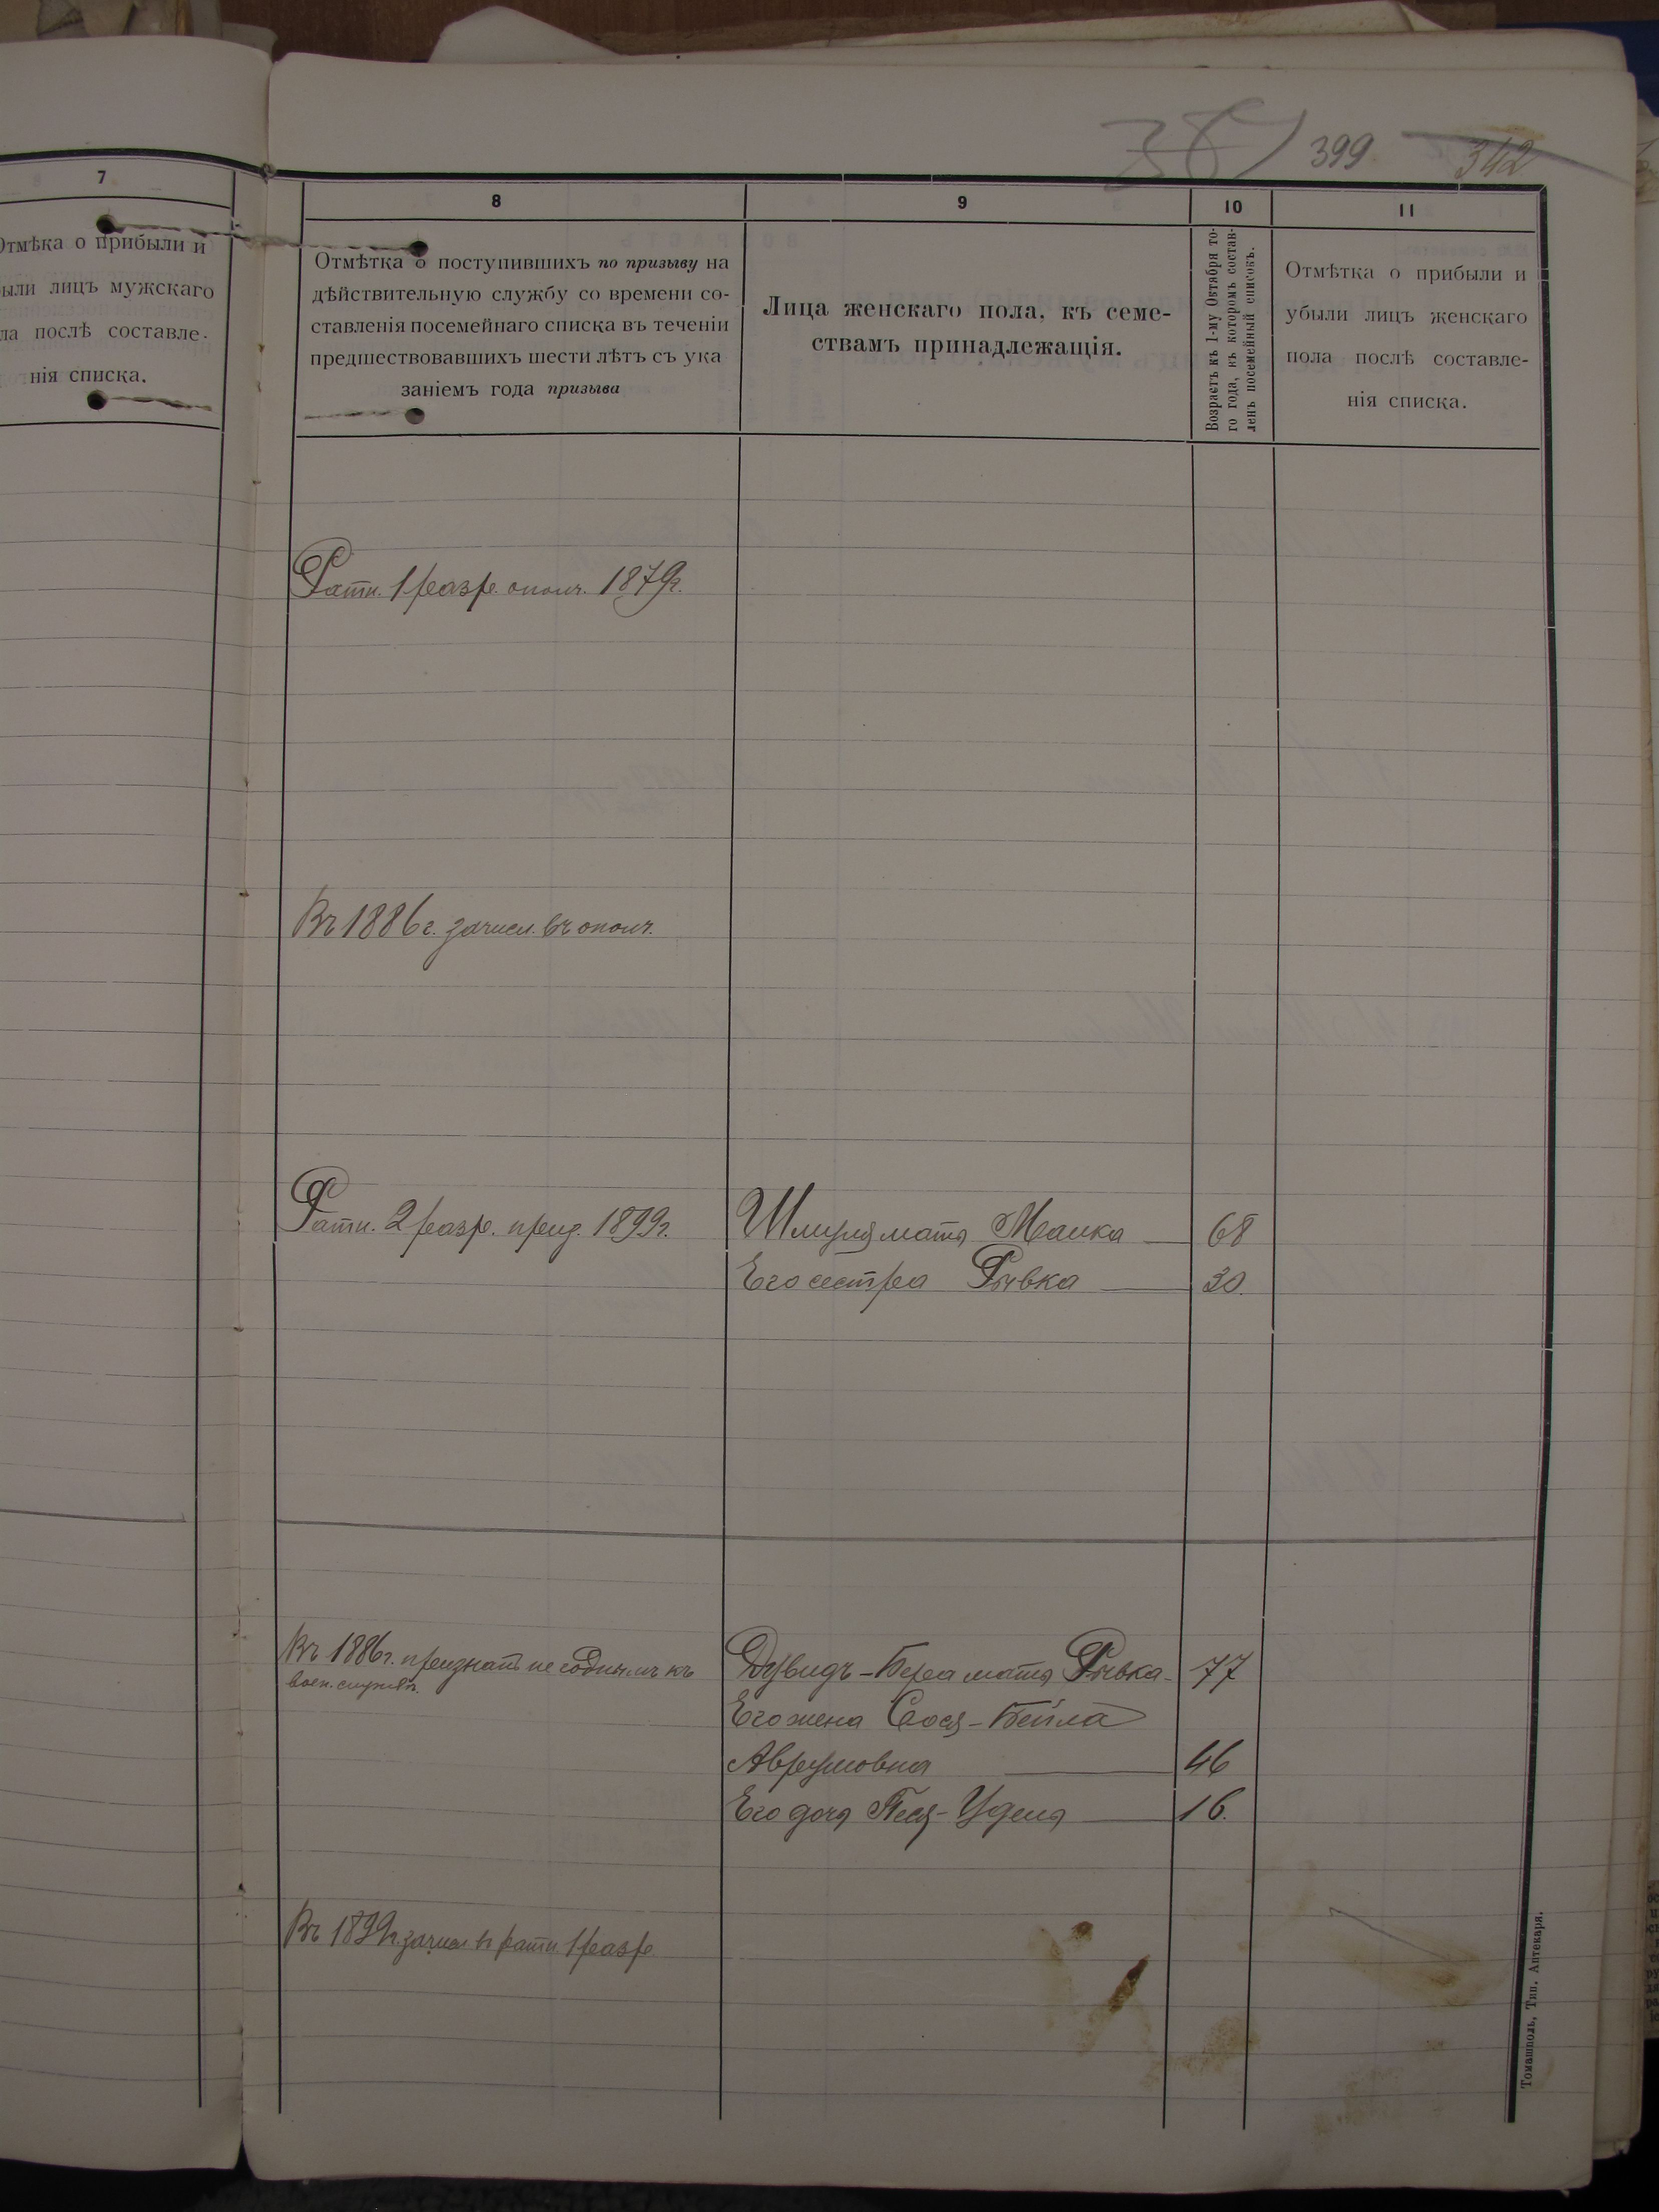 387 399 342
7
Отмѣка о прибыли и
ыли лицъ мужскаго
ла послѣ составле-
нія списка.
8
Отмѣтка о поступившихъ по призыву на
дѣйствительную службу со времени со-
ставленія посемейнаго списка въ теченіи
предшествовавшихъ шести лѣтъ съ ука
заніемъ года призыва
9
Лица женскаго пола, къ семе-
ствамъ принадлежащія.
10
Возрастъ къ 1-му Октября то-
го года, въ которомъ состав-
ленъ посемейный списокъ.
11
Отмѣтка о прибыли и
убыли лицъ женскаго
пола послѣ составле-
нія списка.
Ратн. 1 разр. ополч. 1879г.
Въ 1886г. зачисл. въ ополч.
Ратн. 2 разр. 1899г.
Шмуля мать Малка — 68
Его сестра Рывка — 30.
Въ 1886г. признанъ не годнымъ къ
воен. службѣ.
Дувидъ-Бера мать Рывка - 77
Его жена Сося-Бейла
Аврумовна — 46
Его дочь Песя-Удля — 16.
Въ 1899г. зачисл. в ратн 1 разр
Томашполь, Тип. Аптекаря.